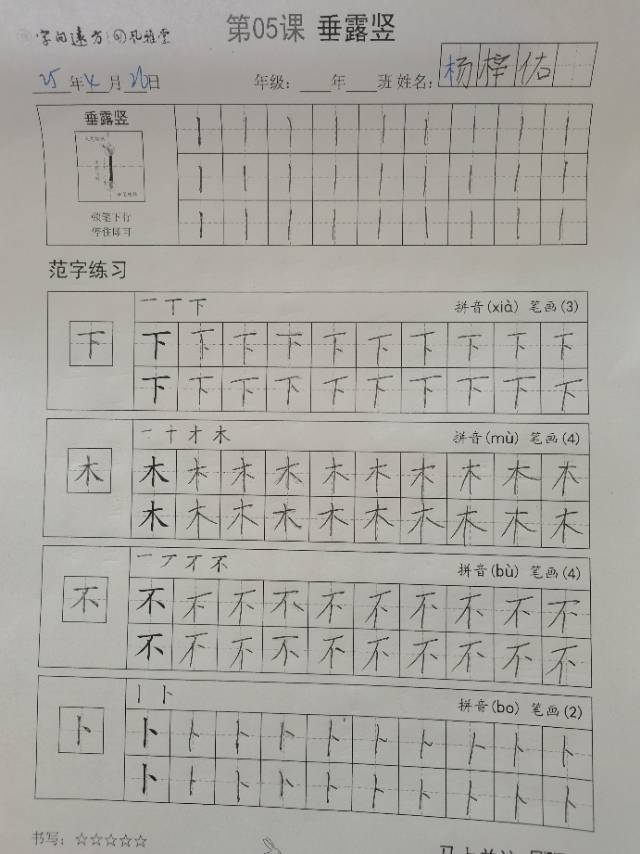 字间远方 第05课 垂露竖
25年4月26日 年级：___年___班 姓名：杨梓佑
垂露竖
顿笔下行
停住即可
范字练习
一 丅 下 拼音(xià) 笔画(3)
下 下 下 下 下 下 下 下 下 下 下
下 下 下 下 下 下 下 下 下 下
一 十 才 木 拼音(mù) 笔画(4)
木 木 木 木 木 木 木 木 木 木 木
木 木 木 木 木 木 木 木 木 木
一 丆 才 不 拼音(bù) 笔画(4)
不 不 不 不 不 不 不 不 不 不 不
不 不 不 不 不 不 不 不 不 不
丨 卜 拼音(bo) 笔画(2)
卜 卜 卜 卜 卜 卜 卜 卜 卜 卜 卜
卜 卜 卜 卜 卜 卜 卜 卜 卜 卜
书写：☆☆☆☆☆